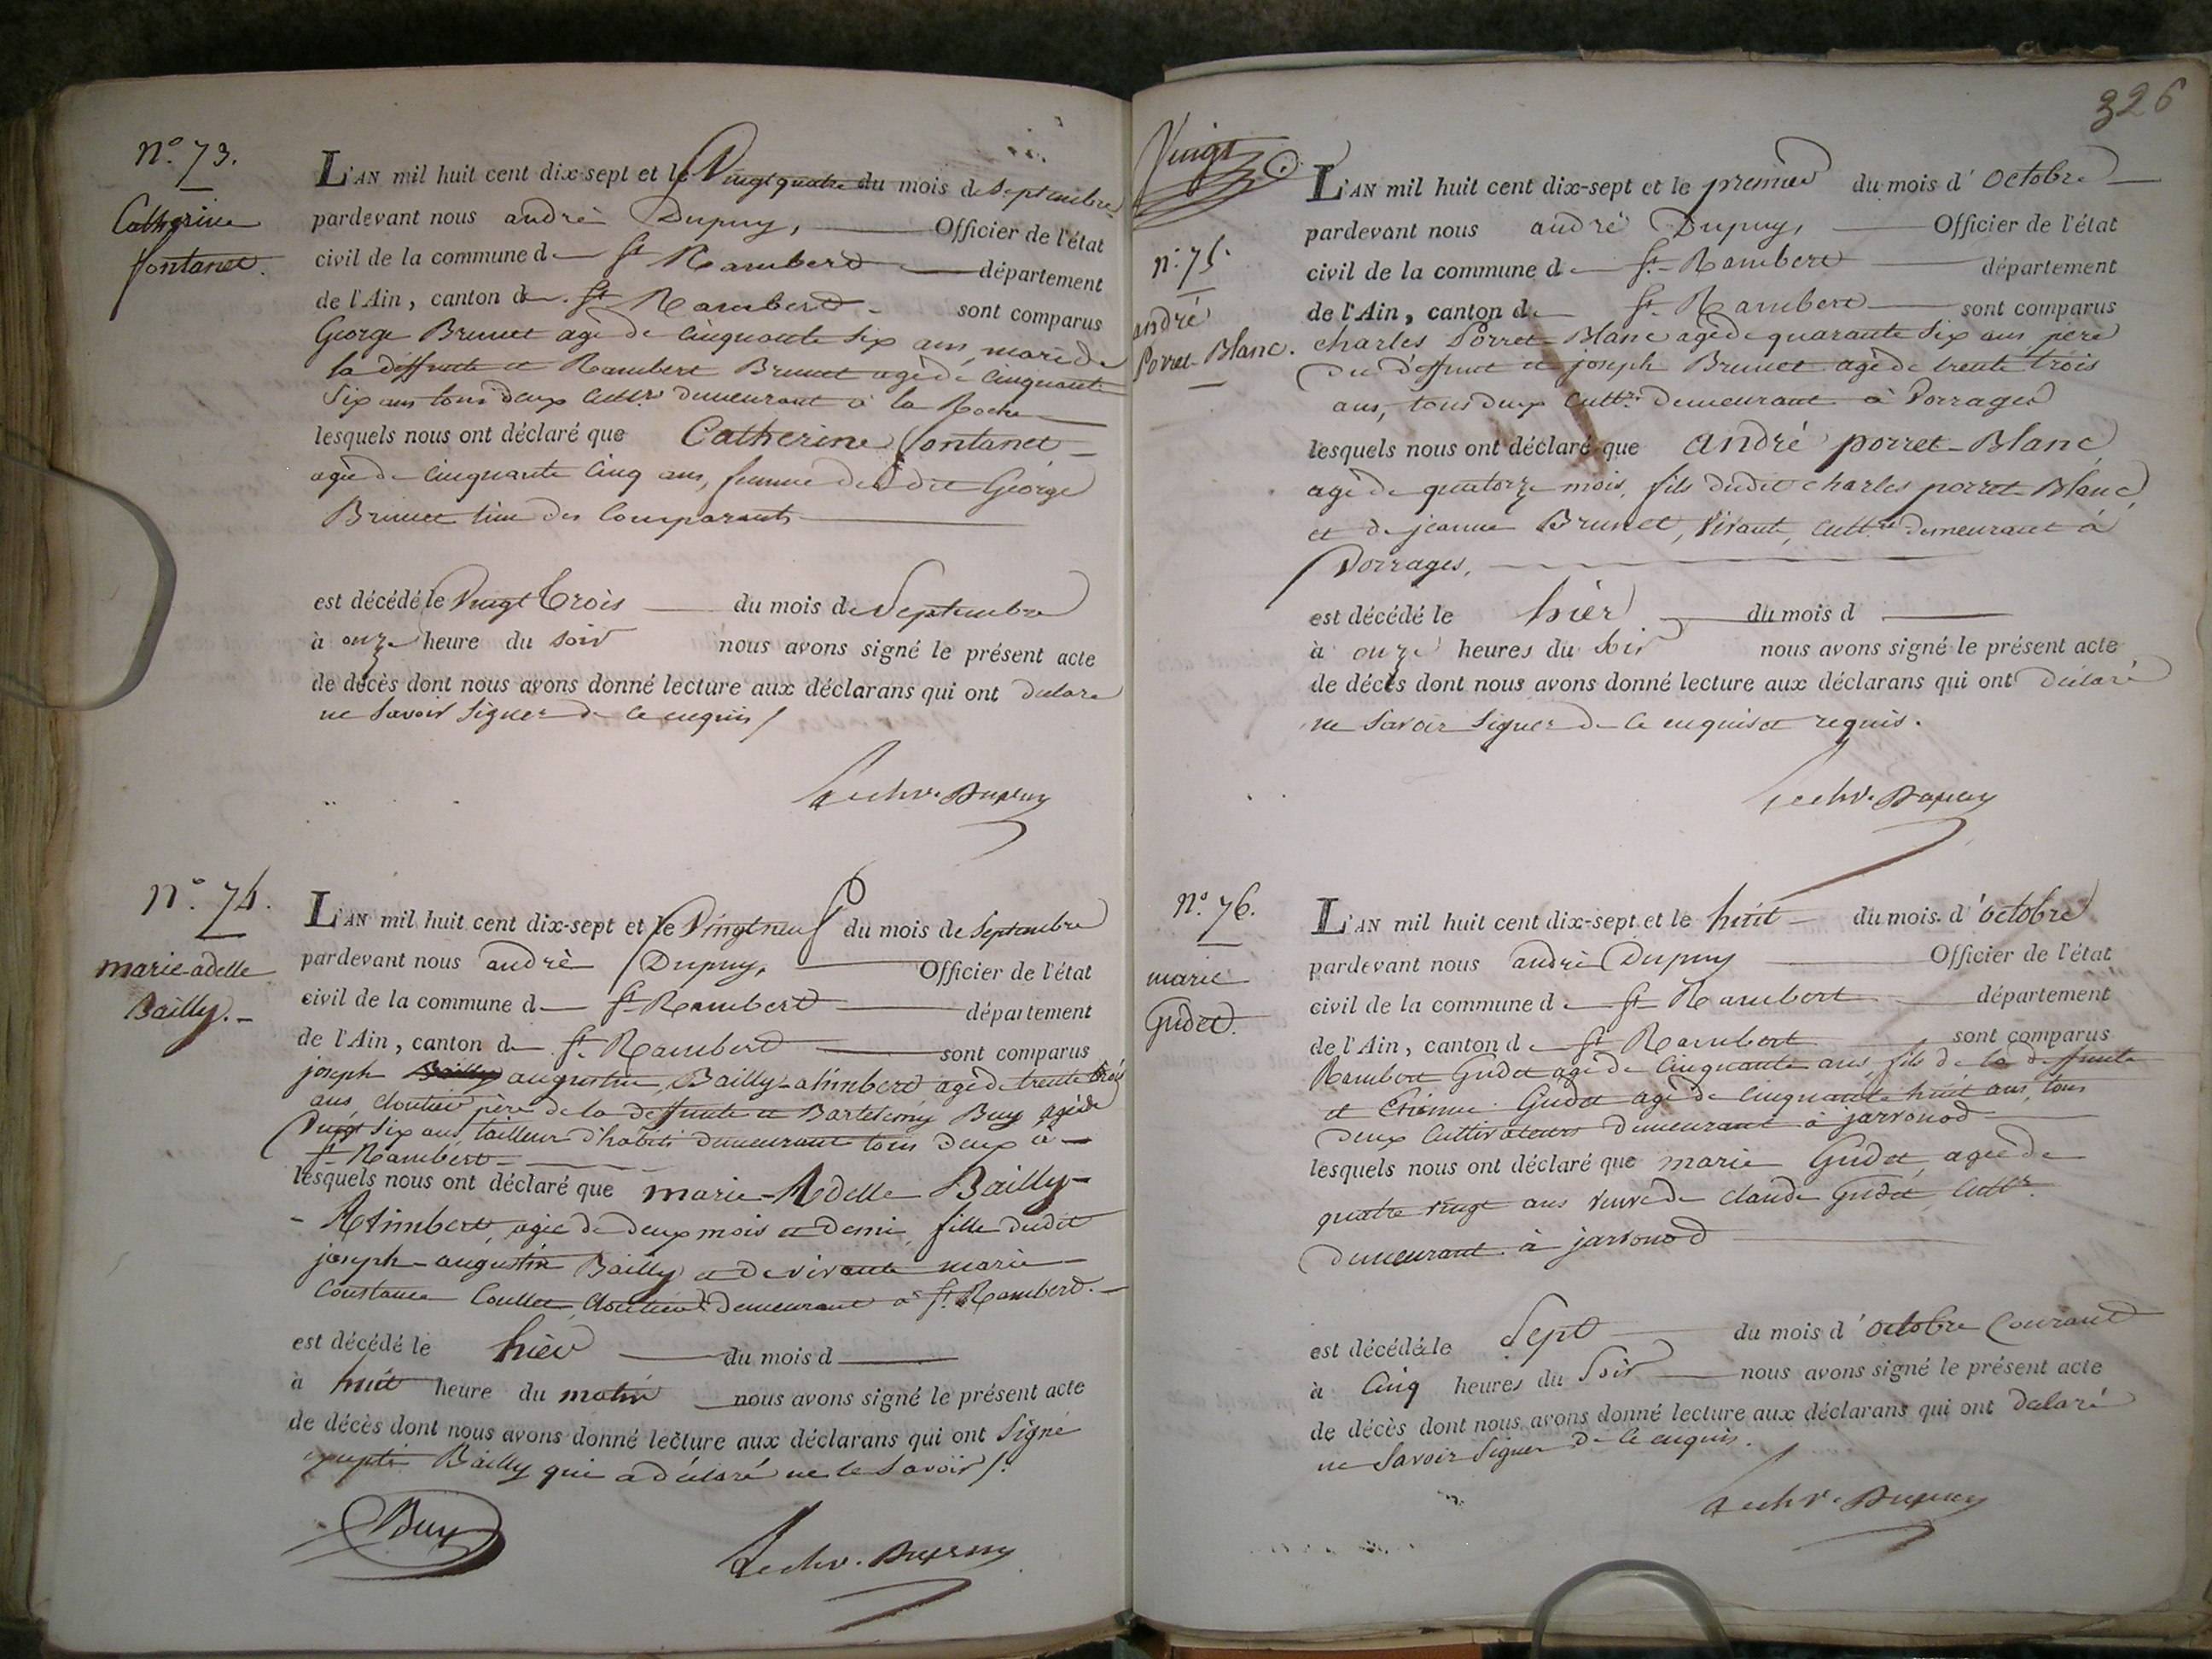 N.° 73.
Catherine
fontanet.
L'AN mil huit cent dix-sept et le Vingt quatre du mois de Septembre
pardevant nous andrè Dupuy, Officier de l'état
civil de la commune d St Rambert département
de l'Ain, canton d St Rambert sont comparus
George Brunet agè de Cinquante Six ans, mari de
la deffunte et Rambert Brunet agè de Cinquante
Six ans tous deux cultrs demeurant à la Roche
lesquels nous ont déclaré que Catherine fontanet
agèe de Cinquante Cinq ans, femme dudit George
Brunet l'un des Comparants
est décédé le Vingt trois du mois de Septembre
à onze heure du soir nous avons signé le présent acte
de décès dont nous avons donné lecture aux déclarans qui ont déclaré
ne Savoir Signer de ce enquis /
Dupuy
N.° 74.
marie-adelle
Bailly.
L'AN mil huit cent dix-sept et le Vingt neuf du mois de Septembre
pardevant nous andrè Dupuy, Officier de l'état
civil de la commune d St Rambert département
de l'Ain, canton d St Rambert sont comparus
joseph Bailly augustin Bailly-atimbert agè de trente trois
ans, cloutier père de la deffunte et Bartelemy Buy agé de
Vingt Six ans, tailleur d'habits demeurant tous deux à
St Rambert
lesquels nous ont déclaré que marie-Adelle Bailly-
-Atimbert, agèe de deux mois et demi, fille dudit
joseph-augustin Bailly et de vivante marie
Constance Coullet, cloutier demeurant à St Rambert.
est décédé le hier du mois d
à huit heure du matin nous avons signé le présent acte
de décès dont nous avons donné lecture aux déclarans qui ont Signé
excepté Bailly qui a déclaré ne le Savoir /.
Buy
Dupuy
326
Vingt
n.° 75.
andré
Porret-Blanc.
L'AN mil huit cent dix-sept et le premier du mois d'Octobre
pardevant nous andré Dupuy, Officier de l'état
civil de la commune d St Rambert département
de l'Ain, canton d St Rambert sont comparus
charles Porret-Blanc agè de quarante Six ans père
du deffunt et joseph Brunet agè de trente trois
ans, tous deux Cultrs demeurant à Dorrages
lesquels nous ont déclaré que andré porret-Blanc
agè de quatorze mois, fils dudit charles porret-Blanc,
et de jeanne Brunet, Vivante, cultrs demeurant à
Dorrages,
est décédé le hier du mois d
à onze heures du soir nous avons signé le présent acte
de décès dont nous avons donné lecture aux déclarans qui ont déclaré
ne Savoir Signer de ce enquis et requis.
Dupuy
N.° 76.
marie
Gudet.
L'AN mil huit cent dix-sept et le huit du mois d'octobre
pardevant nous andrè Dupuy Officier de l'état
civil de la commune d St Rambert département
de l'Ain, canton d St Rambert sont comparus
Rambert Gudet agè de Cinquante ans, fils de la deffunte
et Etienne Gudet agè de Cinquante huit ans, tous
deux Cultivateurs demeurant à jarvonod
lesquels nous ont déclaré que marie Gudet agèe de
quatre vingt ans veuve de claude Gudet, Cultr
demeurant à jarvonod
est décédé le Sept du mois d'octobre Courant
à Cinq heures du Soir nous avons signé le présent acte
de décès dont nous avons donné lecture aux déclarans qui ont déclaré
ne Savoir Signer de ce enquis.
Dupuy